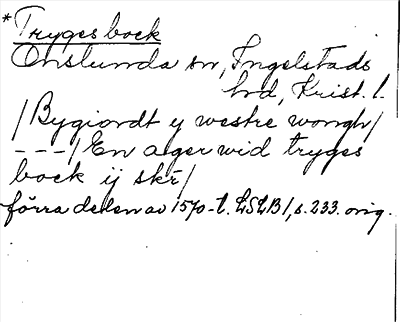 *Trygesbock
Onslunda sn, Ingelstads
hd, Krist. l.
/Bygiordt y westre wongh/
- - -/ En ager wid tryges
bock ij skr/
förra delen av 1570-t. LSLB1, s. 233. orig.